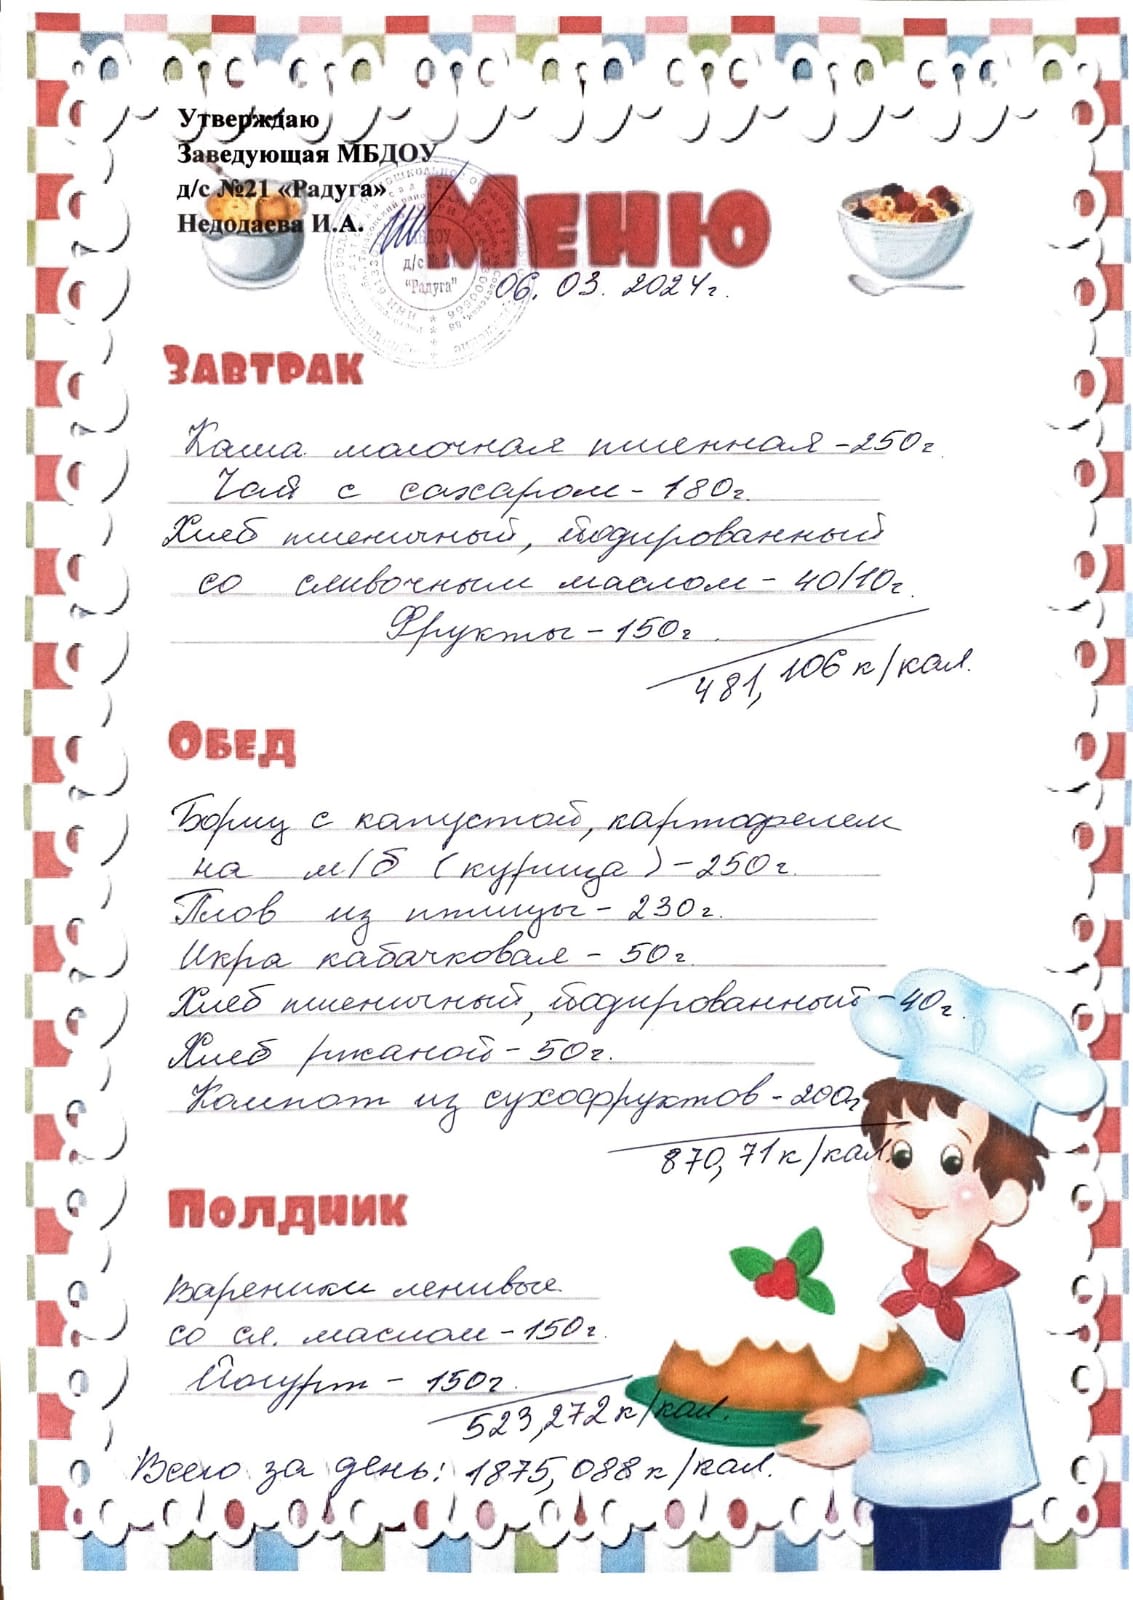 Утверждаю
Заведующая МБДОУ
д/с №21 «Радуга»
Недодаева И.А.
МБДОУ
д/с № 21
"Радуга"
Меню
06. 03. 2024г.
Завтрак
Каша молочная пшенная - 250г.
Чай с сахаром - 180г.
Хлеб пшеничный, йодированный
со сливочным маслом - 40/10г.
Фрукты - 150г.
481,106 к/кал.
Обед
Борщ с капустой, картофелем
на м/б (курица) - 250г.
Плов из птицы - 230г.
Икра кабачковая - 50г.
Хлеб пшеничный, йодированный - 40г.
Хлеб ржаной - 50г.
Компот из сухофруктов - 200г
870,71 к/кал.
Полдник
Вареники ленивые
со сл. маслом - 150г.
Йогурт - 150г.
523,272 к/кал.
Всего за день: 1875,088 к/кал.